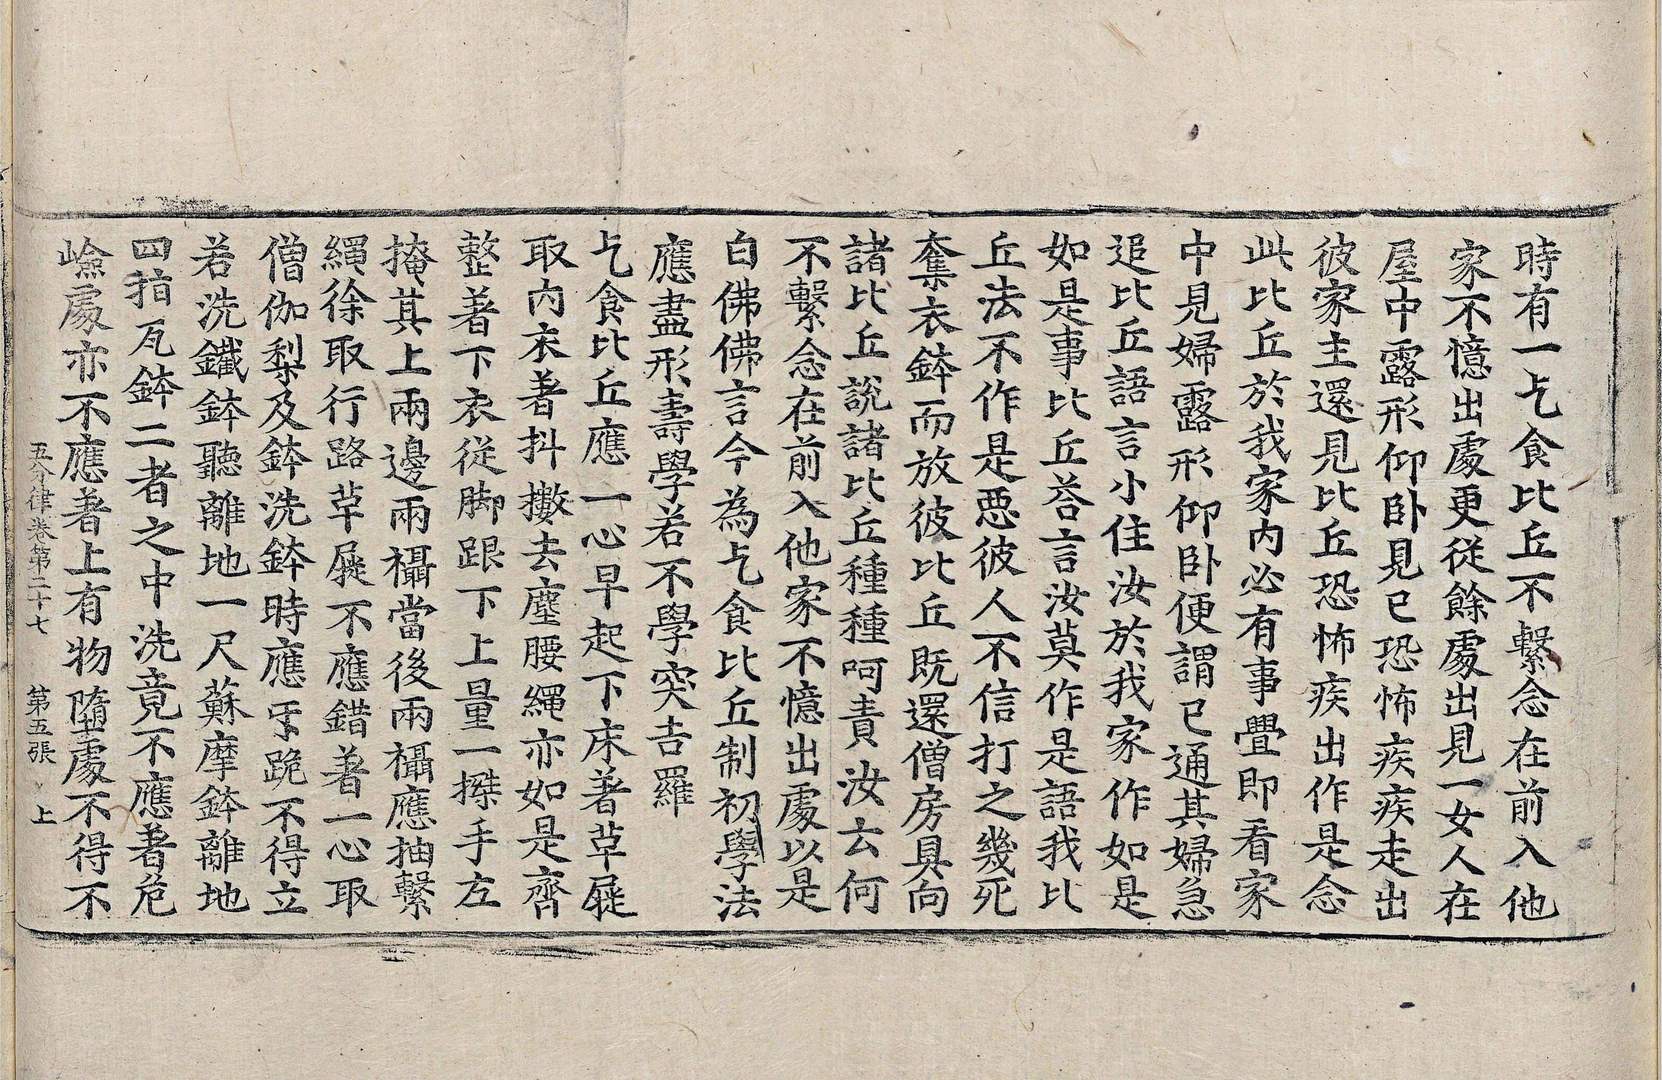 時有一乞食比丘不繫念在前入他
家不憶出處更從餘處出見一女人在
屋中露形仰卧見已恐怖疾疾走出
彼家主還見比丘恐怖疾出作是念
此比丘於我家內必有事疊即看家
中見婦露形仰卧便謂已通其婦急
追比丘語言小住汝於我家作如是
如是事比丘荅言汝莫作是語我比
丘法不作是惡彼人不信打之幾死
奪衣鉢而放彼比丘既還僧房具向
諸比丘說諸比丘種種呵責汝云何
不繫念在前入他家不憶出處以是
白佛佛言今為乞食比丘制初學法
應盡形壽學若不學突吉羅
乞食比丘應一心早起下床著草屣
取內衣著抖擻去塵腰繩亦如是齊
整著下衣從脚跟下上量一搩手左
掩其上兩邊兩襵當後兩襵應抽繫
繩徐取行路草屣不應錯著一心取
僧伽梨及鉢洗鉢時應𭀠跪不得立
若洗鐵鉢聽離地一尺蘇摩鉢離地
四指瓦鉢二者之中洗竟不應著危
嶮處亦不應著上有物墮處不得不
五分律卷第二十七 第五張 上